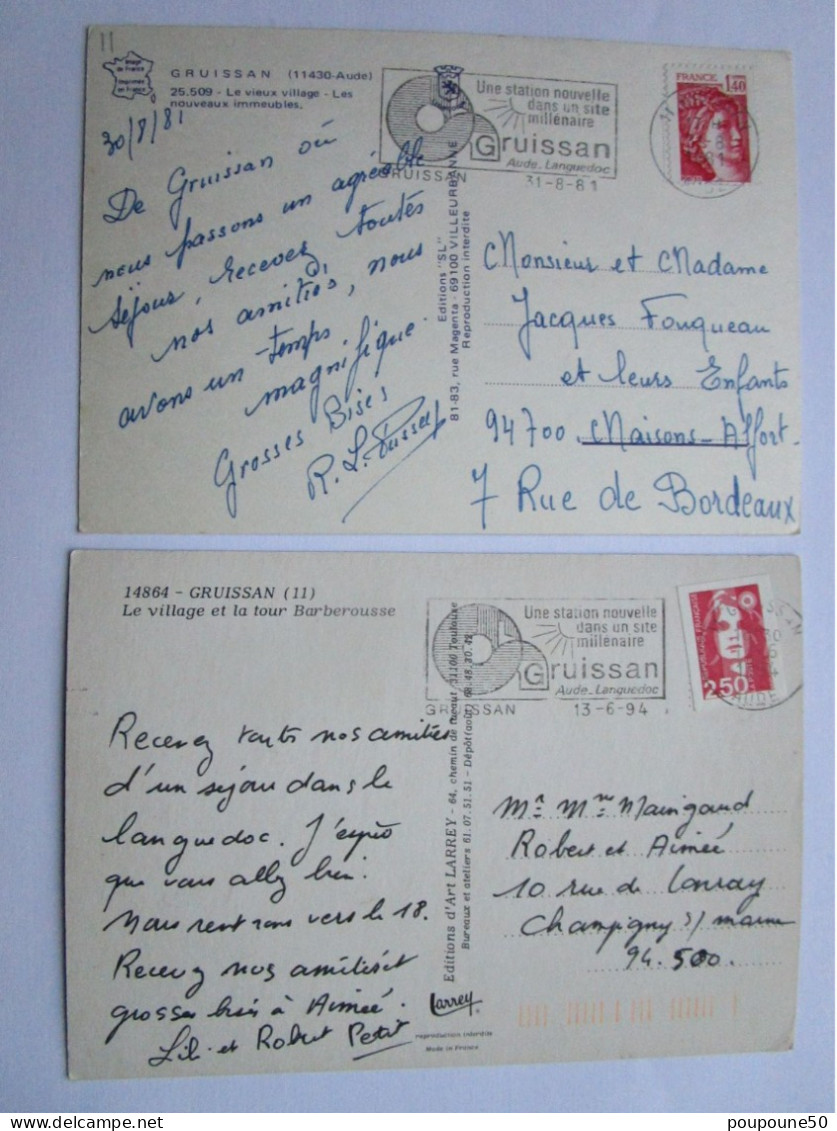 11
Image de France
GRUISSAN (11430-Aude)
25.509 - Le vieux village - Les
nouveaux immeubles.
30/8/81
De Gruissan où
nous passons un agréable
séjour, recevez toutes
nos amitiés, nous
avons un temps
magnifique.
Grosses Bises
R. L.
Editions "SL"
81-83, rue Magenta - 69100 VILLEURBANNE
Reproduction interdite
Une station nouvelle
dans un site
millénaire
Gruissan
Aude_Languedoc
GRUISSAN
31-8-81
FRANCE
1,40
Monsieur et Madame
Jacques Fouqueau
et leurs Enfants
94700 Maisons-Alfort
7 Rue de Bordeaux
14864 - GRUISSAN (11)
Le village et la tour Barberousse
Recevez toutes nos amitiés
d'un séjour dans le
languedoc. J'espère
que vous allez bien.
Nous rentrons vers le 18.
Recevez nos amitiés et
grosses bises à Aimée.
Lili et Robert Petit
Editions d'Art LARREY - 64, chemin de 31100 Toulouse
Bureaux et ateliers 61.07.51.51 - Dépôt (août) 68.48.30.42
Larrey
reproduction interdite
Made in France
Une station nouvelle
dans un site
millénaire
Gruissan
Aude_Languedoc
GRUISSAN
13-6-94
2,50
Mr Mme Maingaud
Robert et Aimée
10 rue de
Champigny s/ marne
94.500.
poupoune50